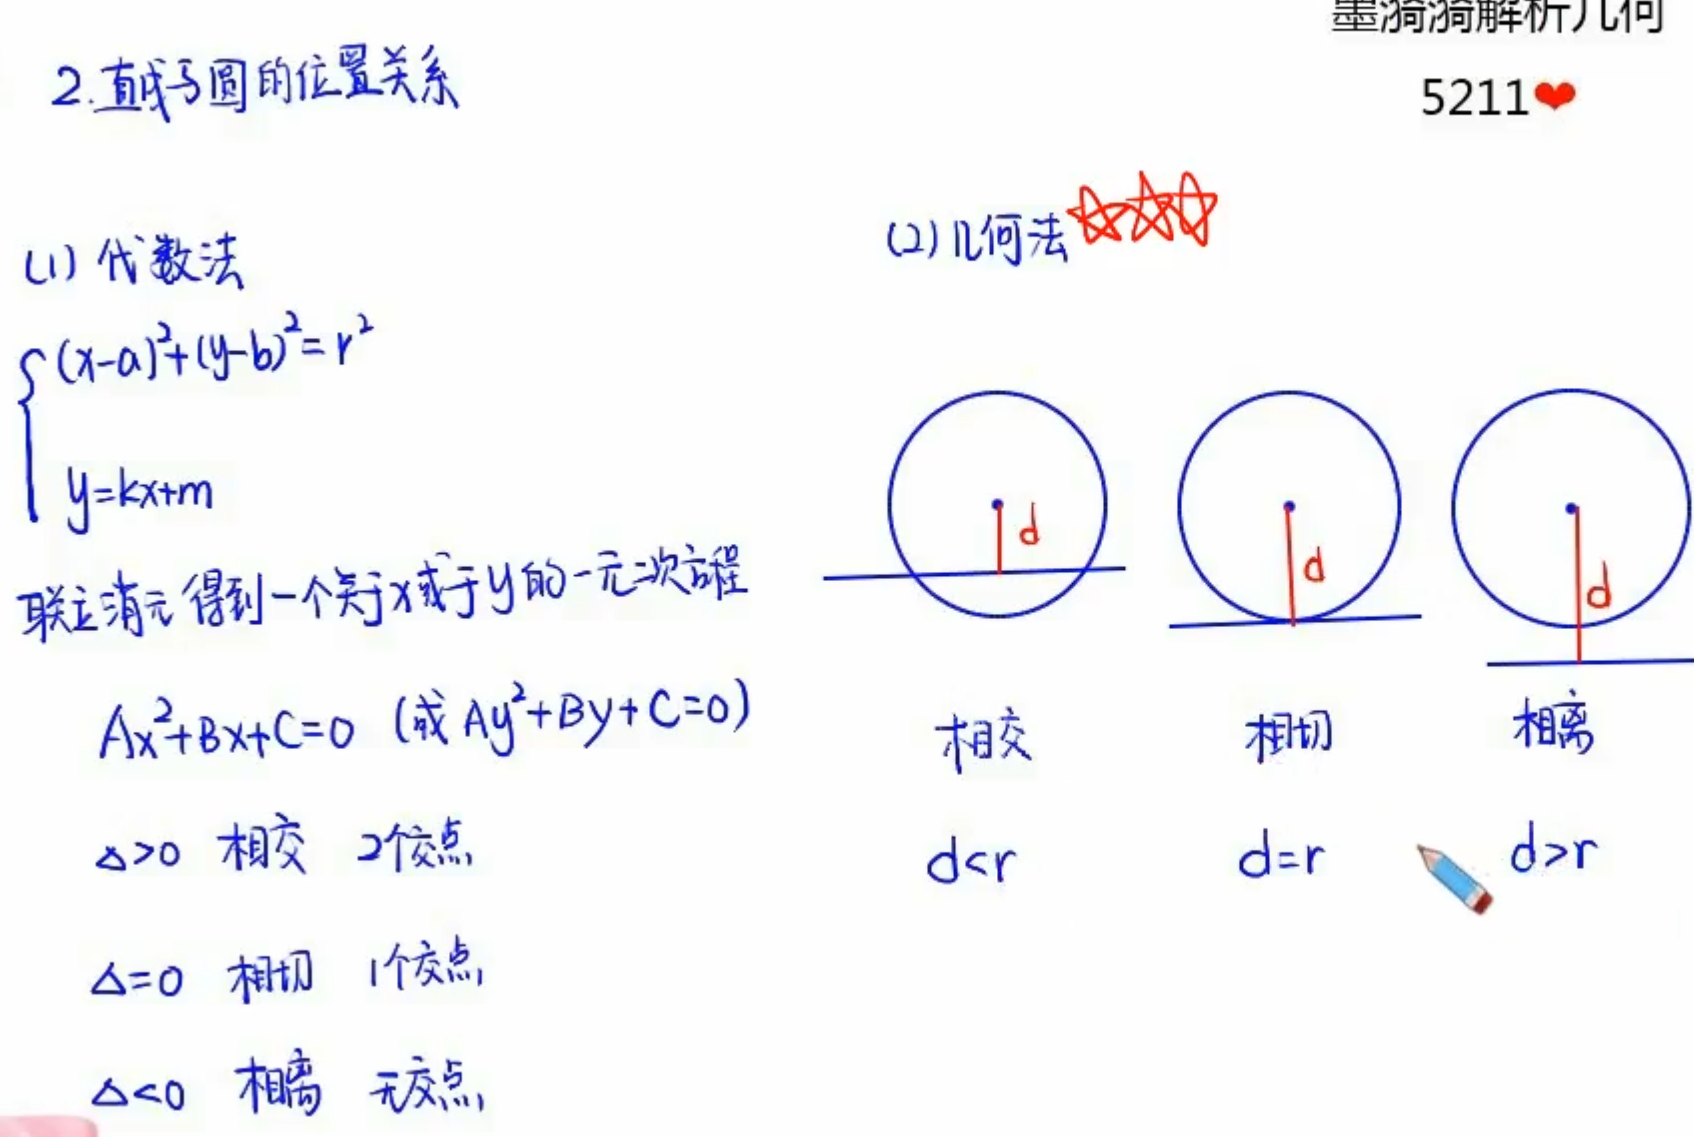 墨漪漪解析几何
5211❤
2.直线与圆的位置关系
(1) 代数法
(x-a)²+(y-b)²=r²
y=kx+m
联立消元得到一个关于x或于y的一元二次方程
Ax²+Bx+C=0 (或Ay²+By+C=0)
△>0 相交 2个交点
△=0 相切 1个交点
△<0 相离 无交点
(2)几何法
d
d
d
相交 相切 相离
d<r d=r d>r